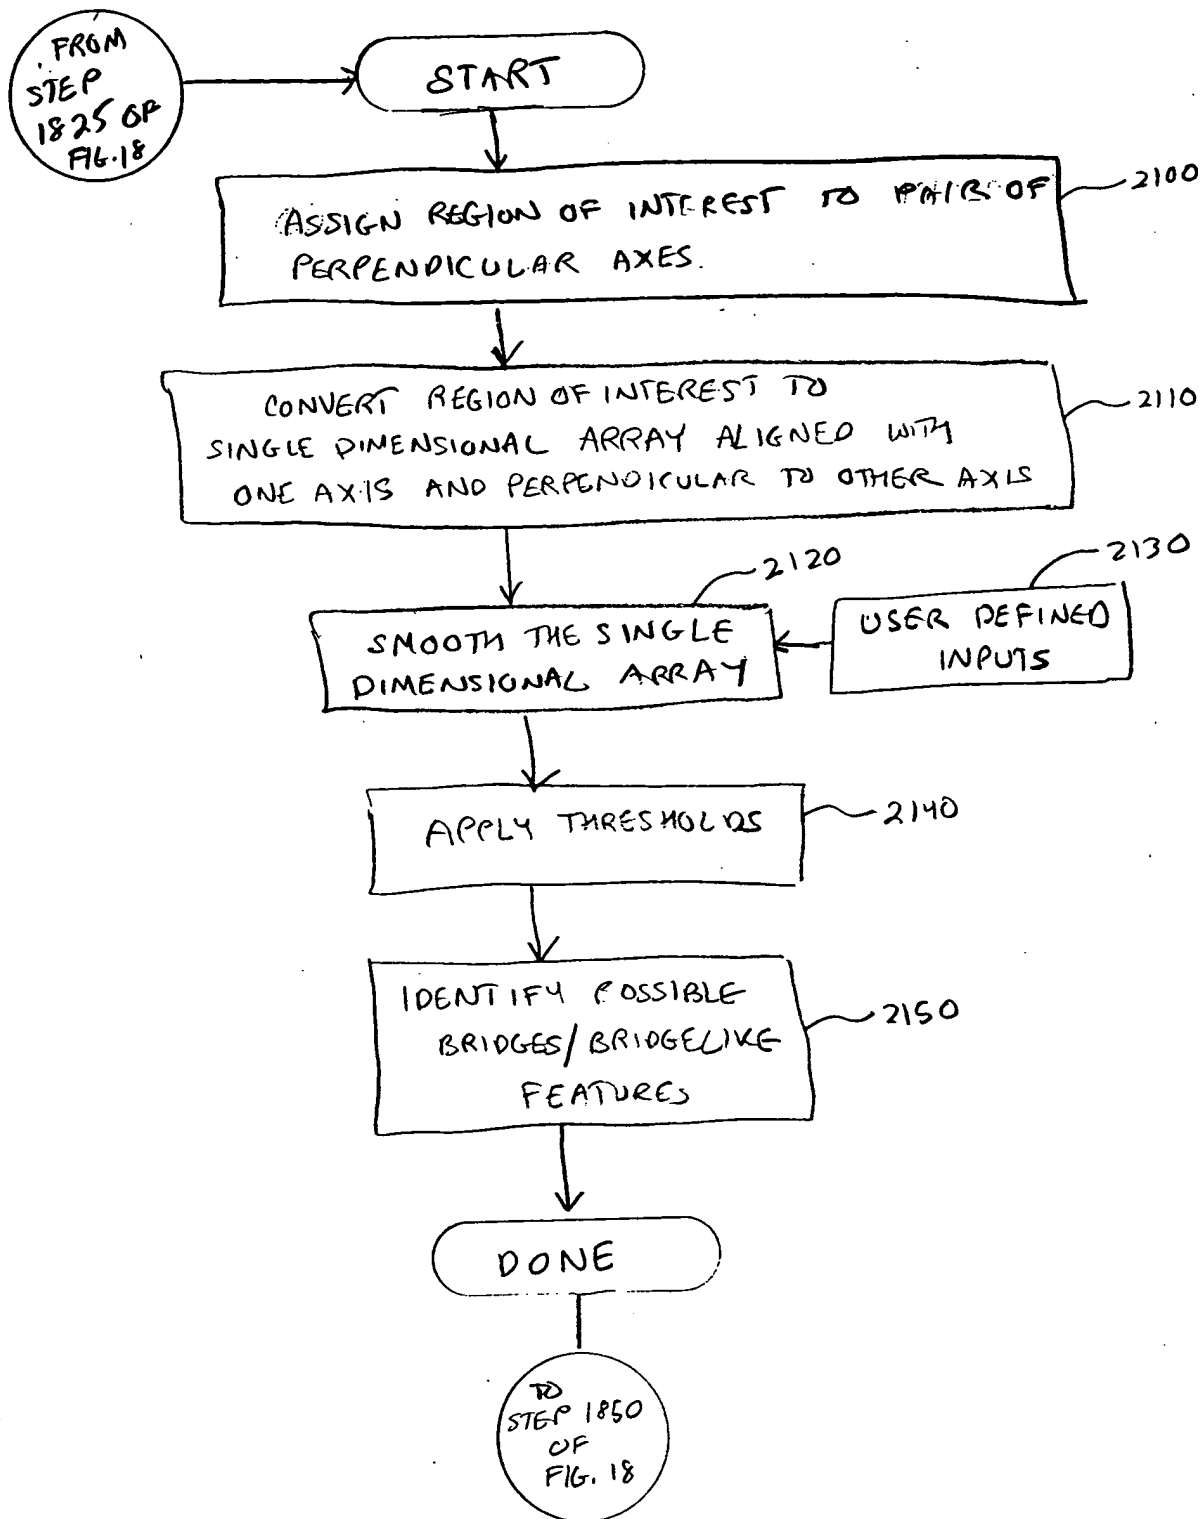 FROM
STEP
1825 OF
FIG. 18
START
2100
ASSIGN REGION OF INTEREST TO PAIR OF
PERPENDICULAR AXES.
2110
CONVERT REGION OF INTEREST TO
SINGLE DIMENSIONAL ARRAY ALIGNED WITH
ONE AXIS AND PERPENDICULAR TO OTHER AXIS
2120
2130
SMOOTH THE SINGLE
DIMENSIONAL ARRAY
USER DEFINED
INPUTS
APPLY THRESHOLDS
2140
IDENTIFY POSSIBLE
BRIDGES/BRIDGELIKE
FEATURES
2150
DONE
TO
STEP 1850
OF
FIG. 18